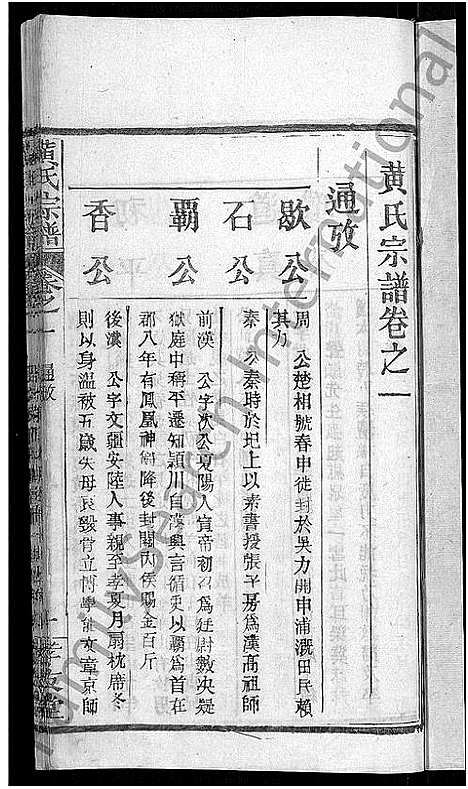 黄氏宗譜卷之一
通攷
歇公
周 公楚相號春申徒封於吳力開申浦溉田民賴
其力
石公
秦 公秦時於圯上以素書授張子房爲漢高祖師
霸公
前漢 公字次公夏陽人宣帝初召爲廷尉數决疑
獄庭中稱平遷知潁川自漢興言循吏以霸爲首在
郡八年有鳳凰神爵降後封關內侯賜金百斤
香公
後漢 公字文疆安陸人事親至孝夏月扇枕席冬
則以身温被五歲失母哀毀骨立博學能文章京師
黃氏宗譜
卷之一
通攷
一
FamilySearch International